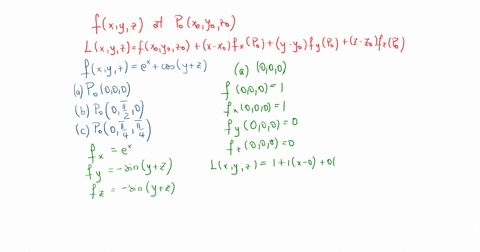 f(x,y,z) at P₀(x₀,y₀,z₀)
L(x,y,z)=f(x₀,y₀,z₀)+(x-x₀)fₓ(P₀)+(y-y₀)f_y(P₀)+(z-z₀)f_z(P₀)
f(x,y,z)=eˣ+cos(y+z)
(a) P₀(0,0,0)
(b) P₀(0,π/2,0)
(c) P₀(0,π/4,π/4)
fₓ = eˣ
f_y = -sin(y+z)
f_z = -sin(y+z)
(a) (0,0,0)
f(0,0,0)=1
fₓ(0,0,0)=1
f_y(0,0,0)=0
f_z(0,0,0)=0
L(x,y,z)= 1+1(x-0)+0(